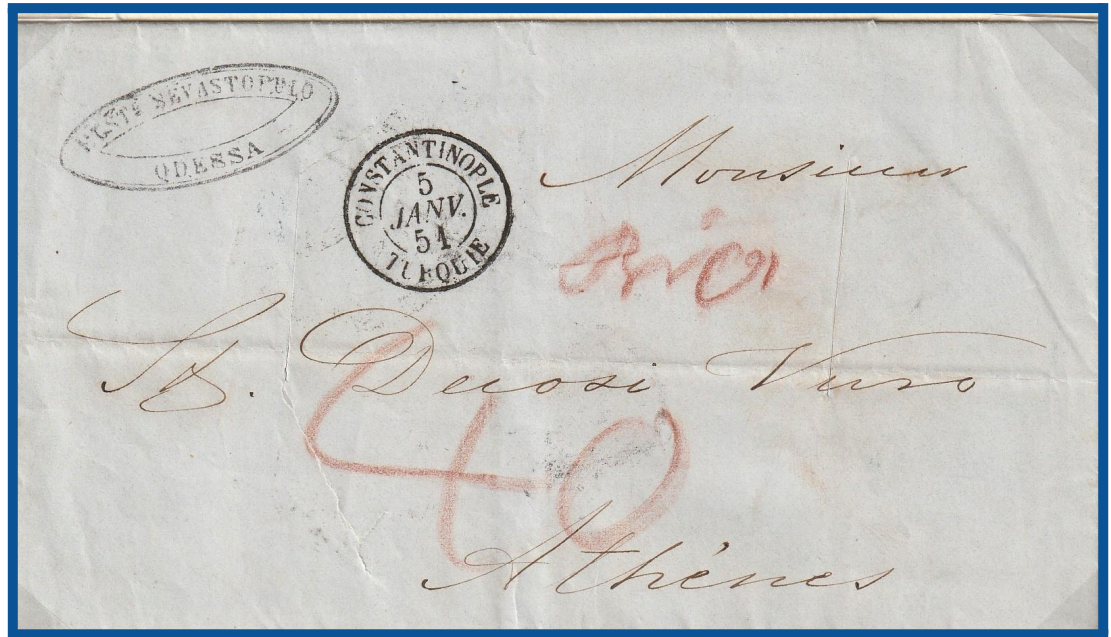 SEVASTOPULO
ODESSA
CONSTANTINOPLE
5
JANV.
51
TURQUIE
Monsieur
St. Decosi Vuro
40
Athénes